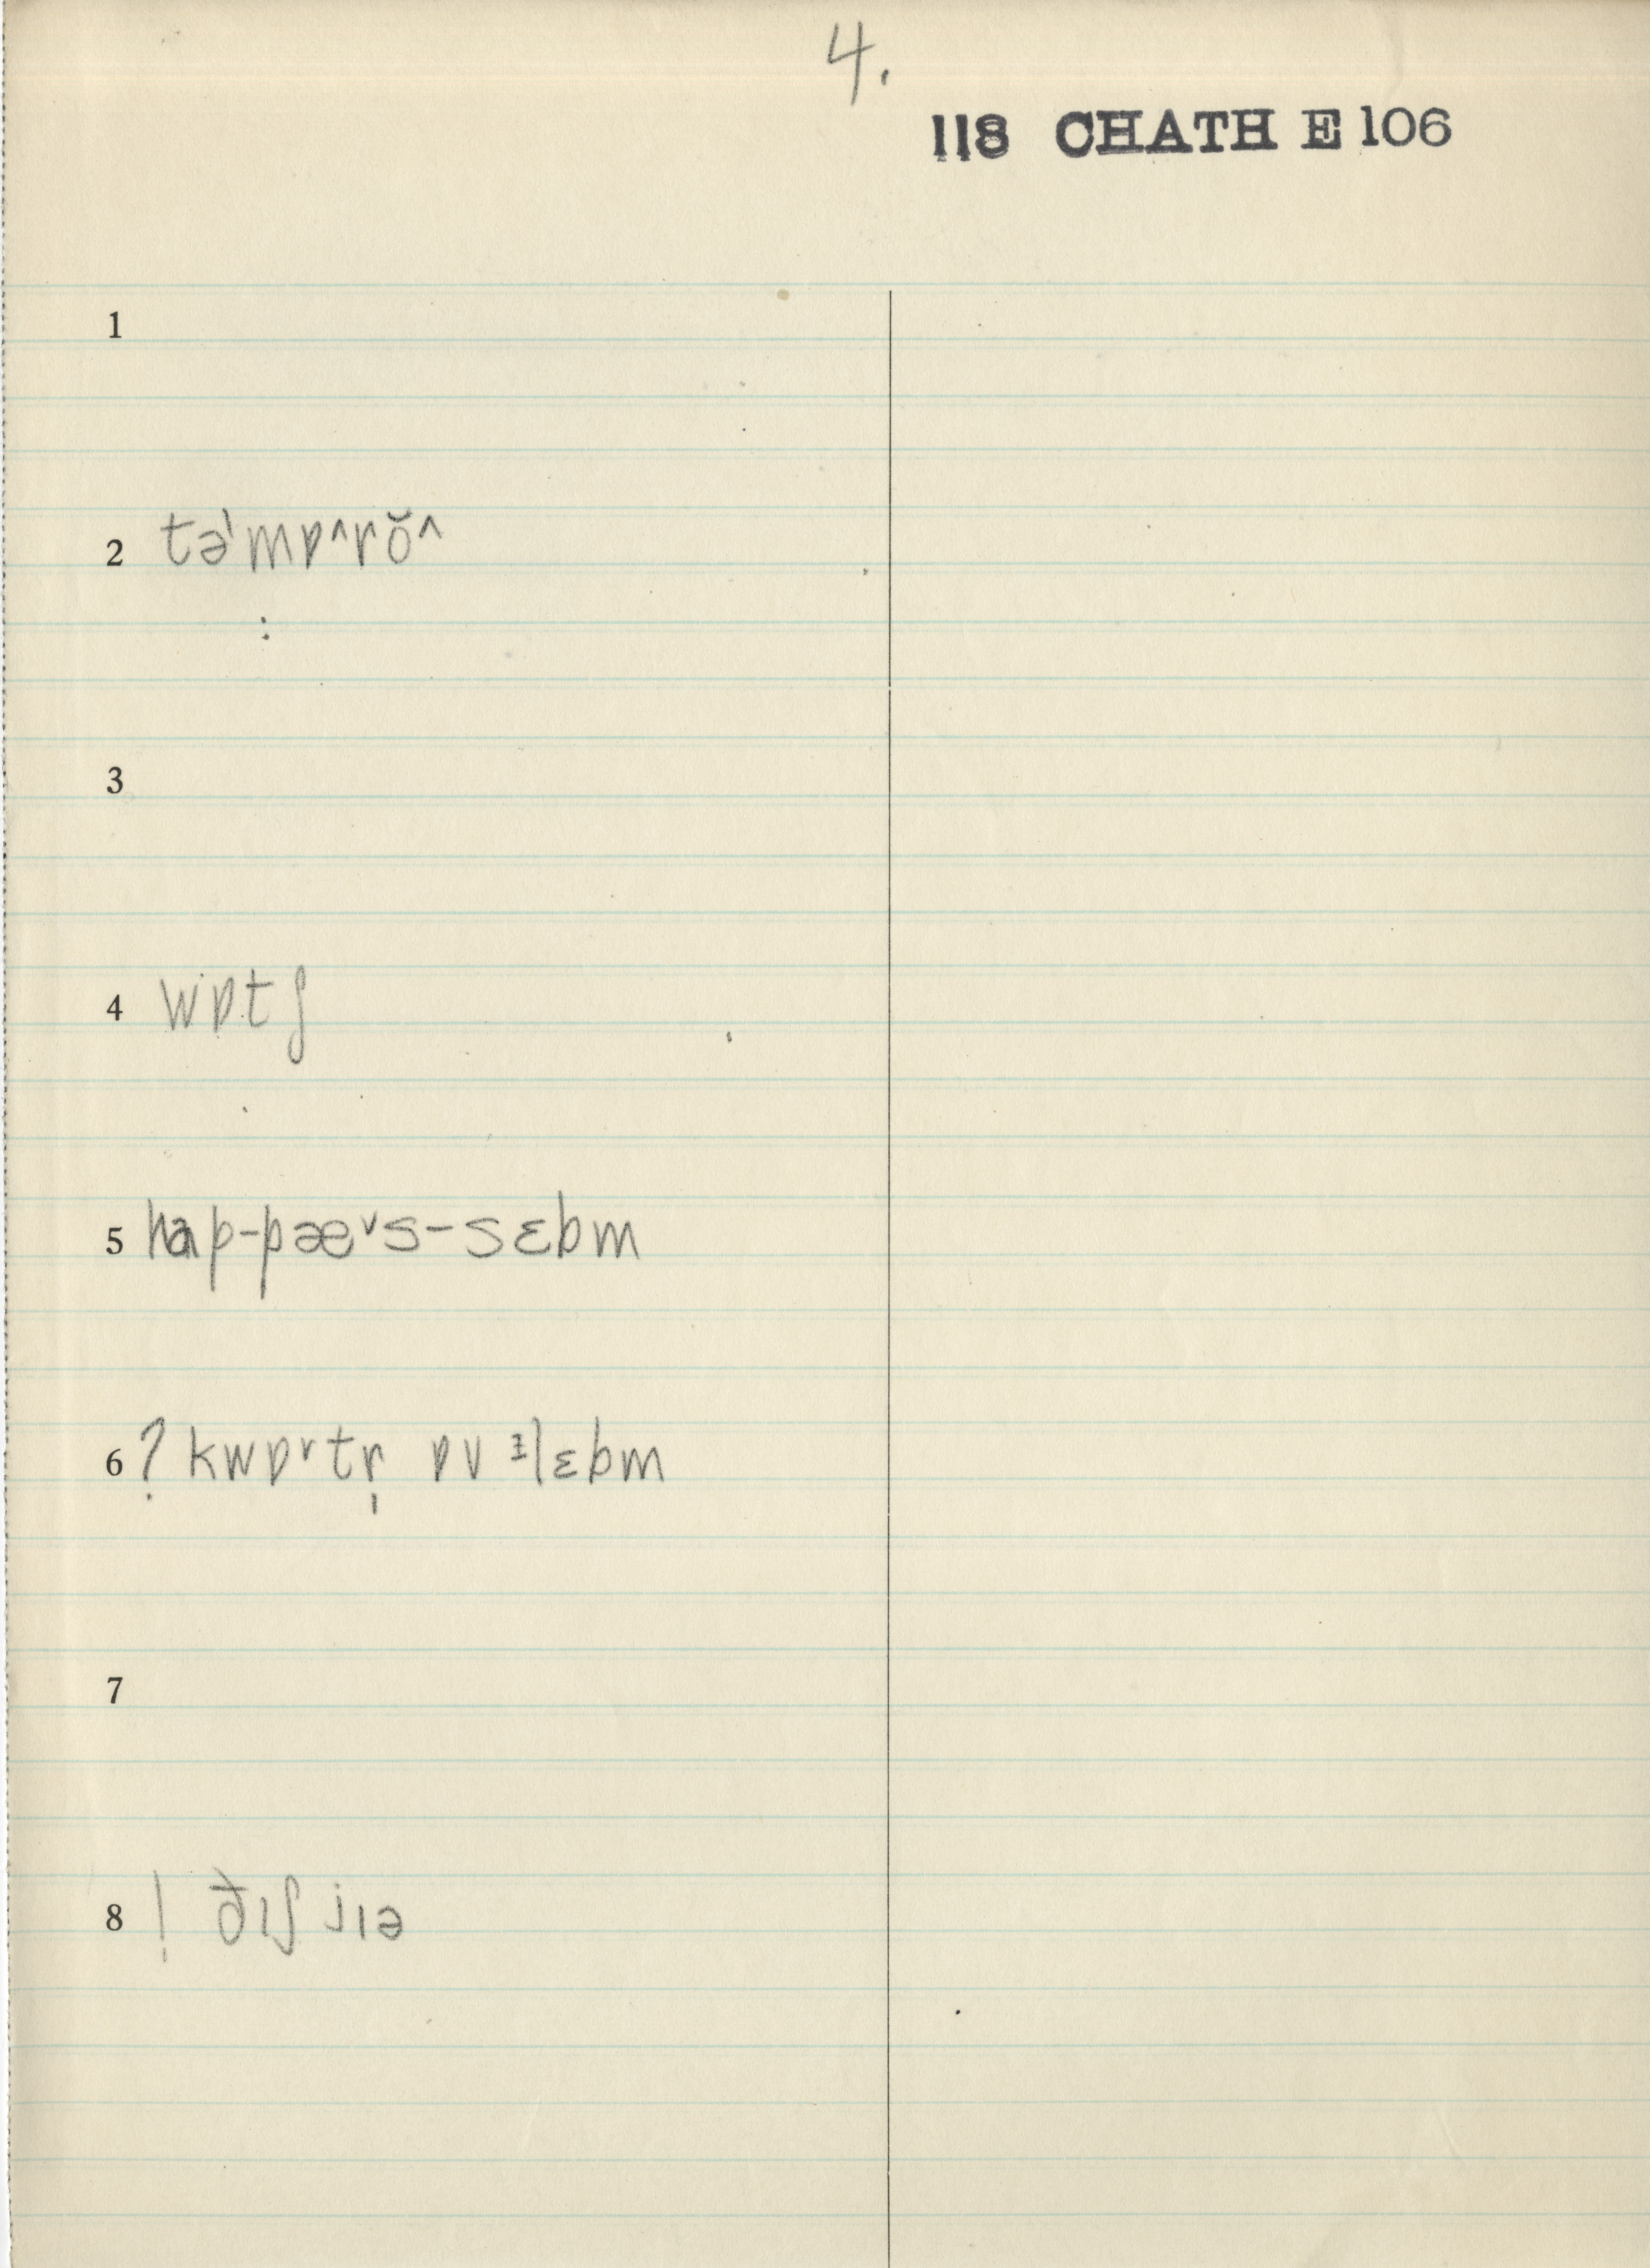 4.
118 CHATH E 106
1
2 tə'mɒ^rŏ^
:
3
4 wɒtʃ
5 hap-pæˇs-sɛbm
6 ? kwɒˇtr̩ ɒv ᵻlɛbm
7
8 ! ðɪʃ jɪə